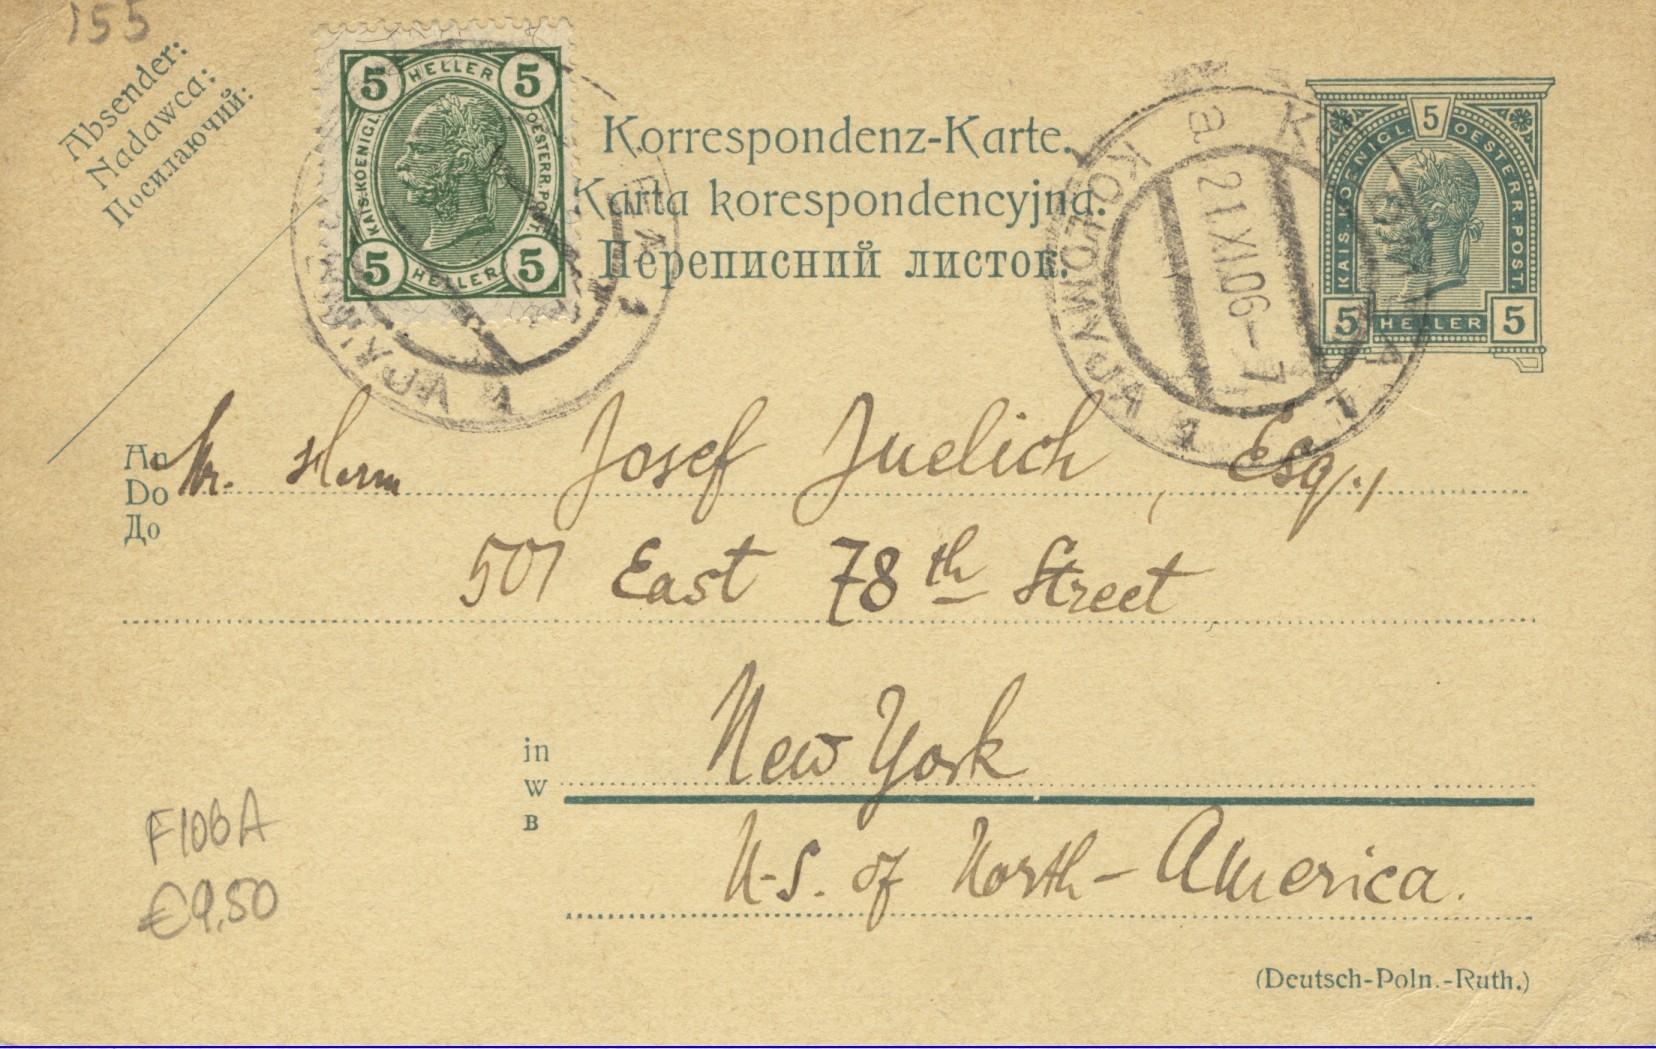 155
Absender:
Nadawca:
Посилаючий:
5 HELLER 5
KAIS. KOENIGL. OESTERR. POST.
5 HELLER 5
Korrespondenz-Karte.
Karta korespondencyjna.
Переписний листок.
a
KOŁOMYJA 1
21.XI.06-7
5
KAIS. KOENIGL. OESTERR. POST.
5 HELLER 5
An Mr. Herrn Josef Juelich, Esq.,
Do
До
501 East 78th Street
in New York
w
в
U.S. of North-America.
F106A
€9,50
(Deutsch-Poln.-Ruth.)